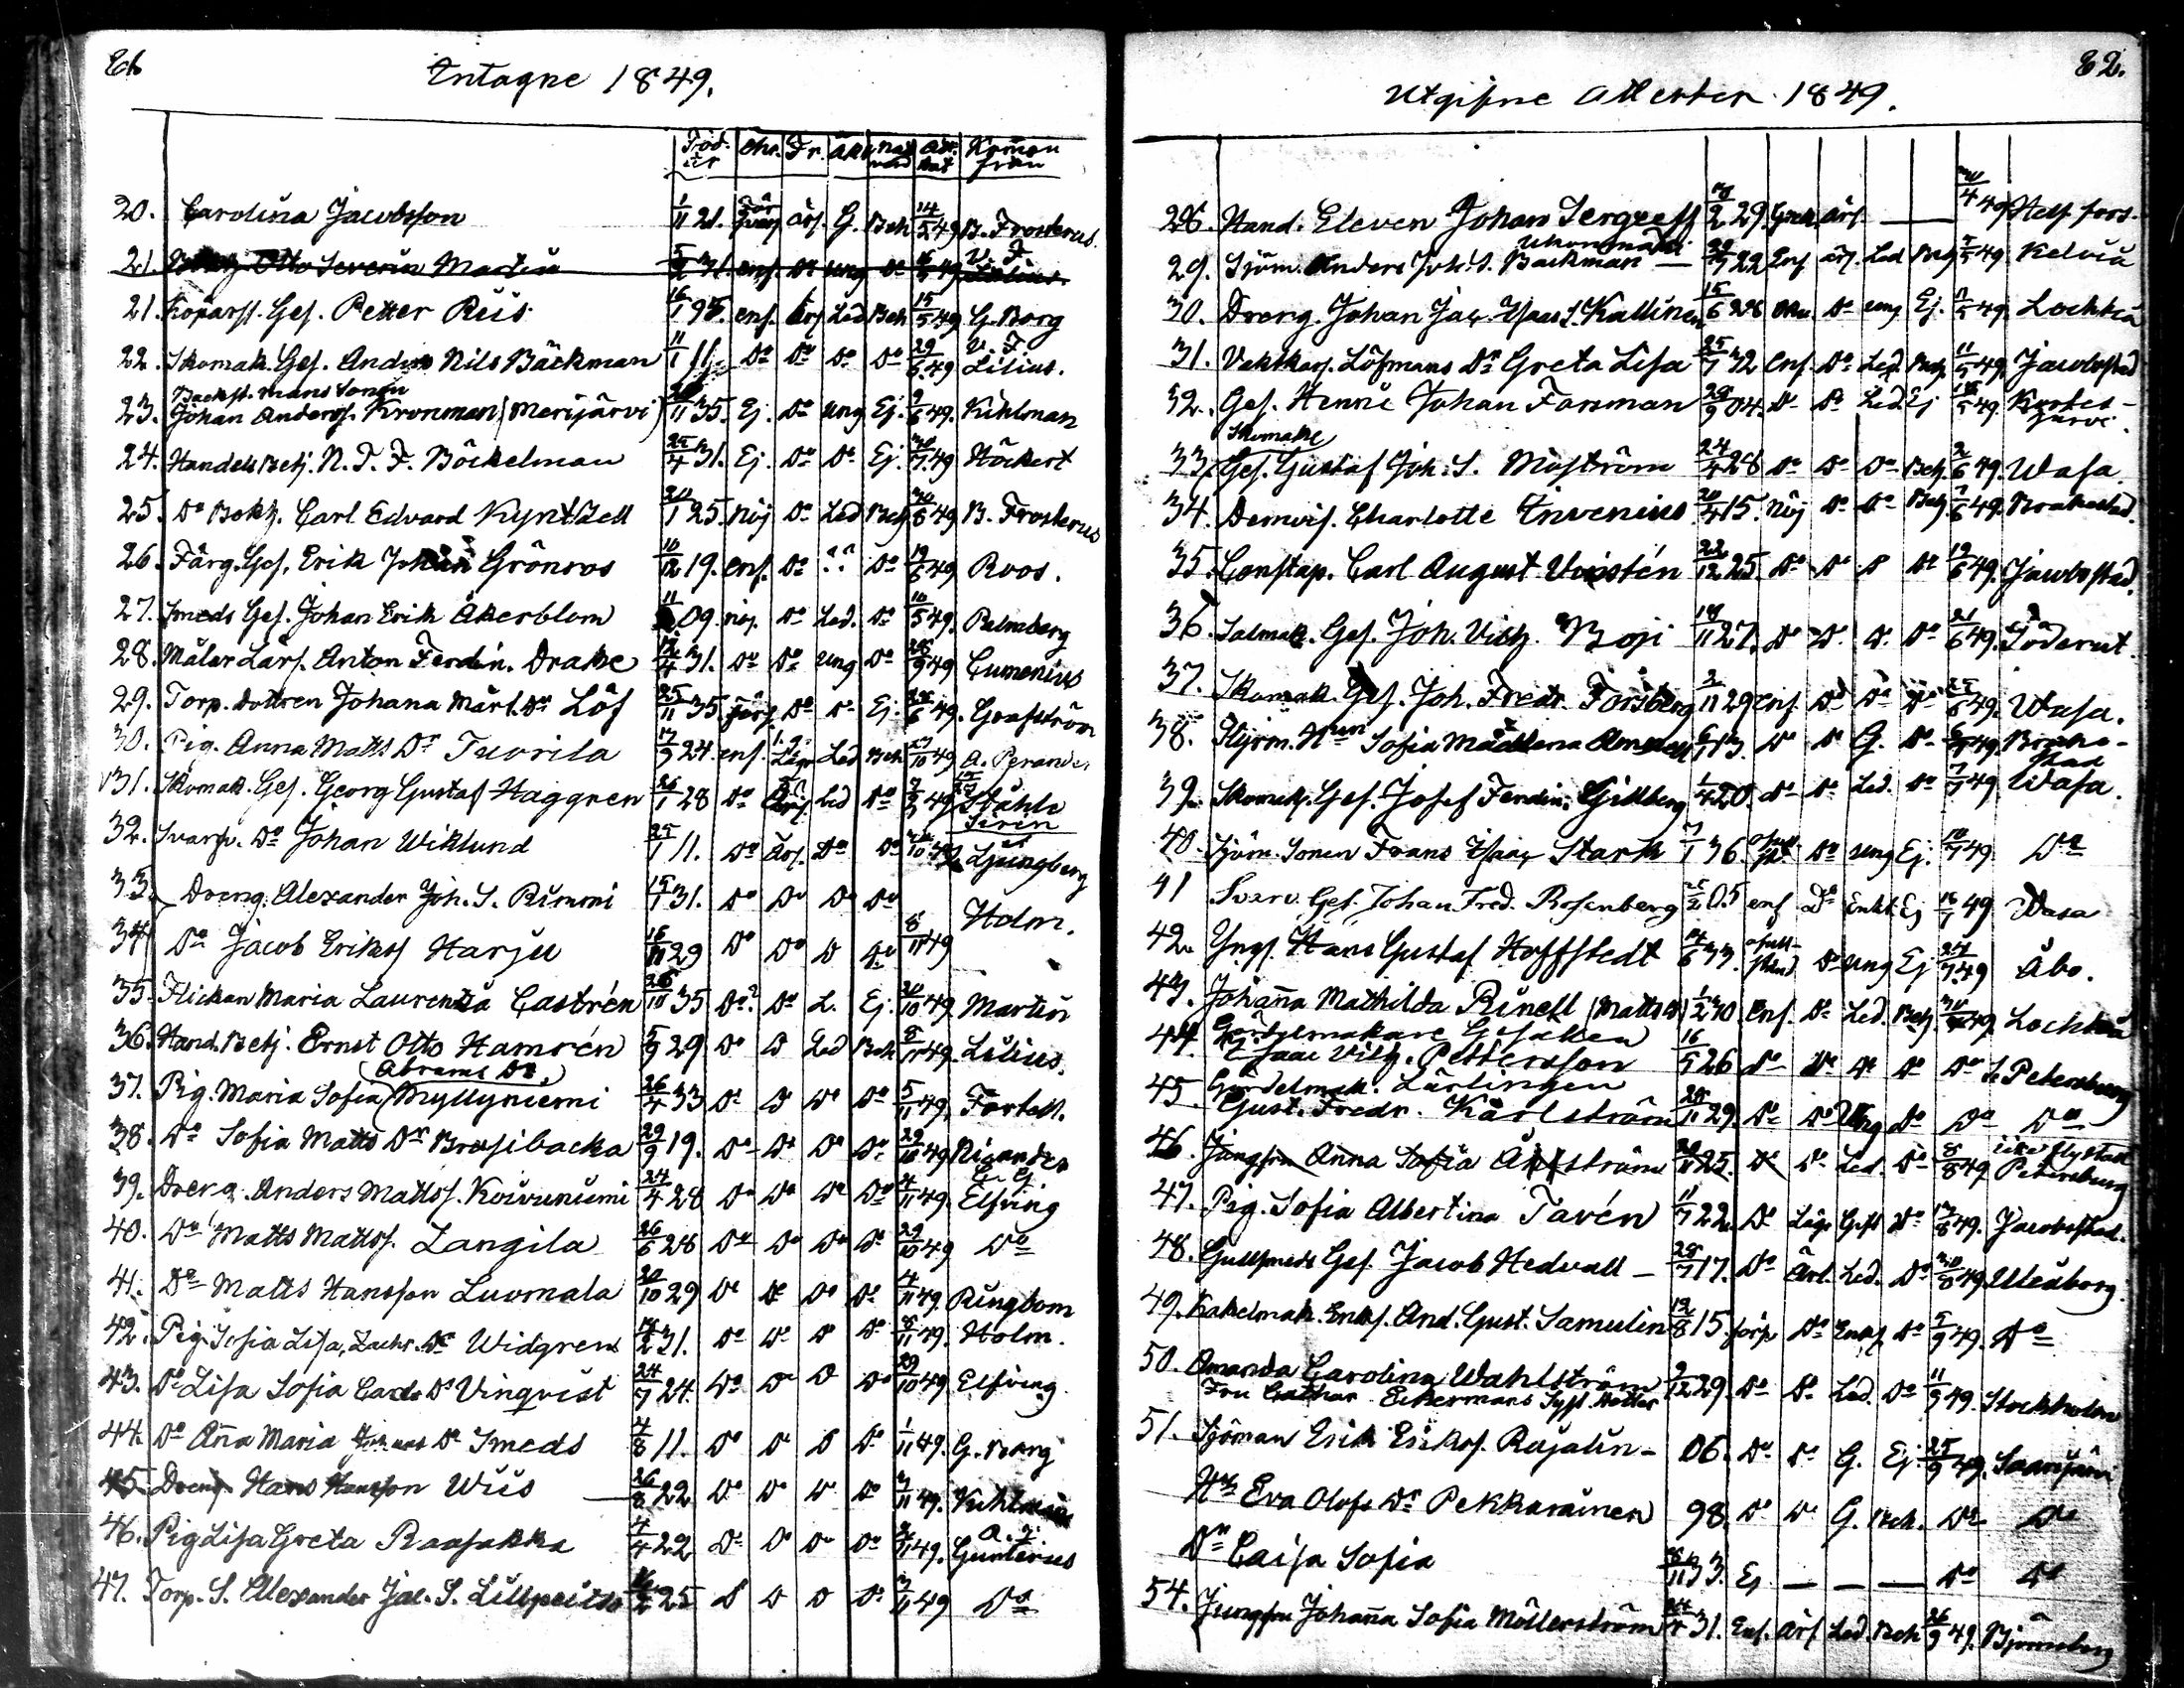 Intagne 1849.
Föd. år Chr. Fr. Äkt. Natvard Att. dat Kommen från
20. Carolina Jacobsson 1/11 21. ärf. G. Beh 14/5 49 B. Frosterus
21. Otto Severin Martin 5/ 31. enf. Do ung Do 49 Lilius
21. Kopparsl. Ges. Petter Riis 16/1 95. enf. ärf Led Beh 15/5 49 G. Borg
22. Skomak. Ges. Anders Nils Bäckman 11/1 11. Do Do Do Do 29/5 49 V. F. Lilius.
Backst. mans Sonen
23. Johan Andersf. Kronman (Merijärvi) 20/11 35. Ej. Do ung Ej. 9/6 49. Kihlman
24. Handels Betj. N. J. F. Böckelman 25/4 31. Ej. Do Do Ej. 30/7 49 Höckert
25. Do Bokh. Carl Edvard Kyntzell 20/1 25. nöj Do Led Beh 30/8 49 B. Frosterus
26. Färg. Ges. Erik Johan Grönroos 10/12 19. enf. Do Do 12/6 49 Roos.
27. Smeds Ges. Johan Erik Åkerblom 11/ 09. nöj. Do Led. Do 10/5 49. Palmberg
28. Målar Lärl. Anton Ferdin. Drake 12/4 31. Do Do ung Do 28/9 49 Cumenius
29. Torp. dottren Johana Märt. Dr Löf 25/11 35 förf. Do Do Ej. 28/6 49. Grafström
30. Pig. Anna Matts Dr Tuorila 17/9 24. enf. Läge Led Beh 13/10 49 A. Perander
31. Skomak. Ges. Georg Gustaf Haggren 26/1 28 Do Led Do 7/3 49 Ståhle
32. Svarfv. Do Johan Wiklund 25/1 11. Do ärf. Do Do /10 49 Ljungberg
33. Dreng. Alexander Joh. S. Rimmi 15/1 31. Do Do Do Do
34 Do Jacob Eriksf Harju 16/11 29 Do Do D Do 8/11 49 Holm.
35. Flickan Maria Laurentia Castrén 26/10 35 Do? Do L. Ej. 20/10 49 Martin
36. Hand. Betj. Ernst Otto Hamrén 5/9 29 Do D Led Beh 8/11 49. Lilius.
(Abrams Dr.)
37. Pig. Maria Sofia Myllyniemi 26/4 33 Do D Do Do 5/11 49. Fortell.
38. Do Sofia Matts Dr Brasibacka 29/9 19. Do Do Do Do 29/10 49 Nigander
39. Dreng. Anders Mattsf. Koivuniemi 24/4 28 Do Do Do Do 4/11 49. Elfving
40. Do Matts Mattsf. Langila 26/6 28 Do Do Do Do 29/10 49 Do
41. Do Matts Hansson Luomala 20/10 29 Do Do Do Do 4/11 49. Ringbom
42. Pig. Sofia Lisa, Zachr. Dr Widgren 14/2 31. Do Do D Do 8/11 49. Holm.
43. Do Lisa Sofia Carls Dr Vinqvist 24/7 24. Do Do D Do 29/10 49 Elfving
44. Do Anna Maria Johans Dr Smeds 4/8 11. Do Do D Do 1/11 49. G. Borg
45. Dreng Hans Hansson Wiis 26/8 22 Do Do Do Do 3/11 49. Kihlman
46. Pig Lisa Greta Raasakka 4/4 22 Do D Do Do 4/11 49. Gunterius
47. Torp. S. Alexander Jac. S. Lillpeitso 16/2 25 D D D Do 3/11 49 Do
82.
Utgifne Attester 1849.
28. Hand. Eleven Johan Sergeeff 2 29. Grek. ärf. — /4 49 Helsfors.
29. Sjöm. Anders Joh. S. Backman — 22 Enf ärf. Led 49. Kelviå
30. Dreng. Johan Jac. Isaacs S. Kallinen 15/6 28 Do ung Ej. 49. Lochteå
31. Vaktkarl. Löfmans Dr Greta Lisa 25/7 32 Enf. Do Led. 11/5 49. Jacobstad
32. Ges. Henric Johan Forsman 29/9 04. Do Do Led. Ej 49. Kortesjärvi.
Skomak.
33. Ges. Gustaf Joh. S. Moström 24/4 28 Do Do Do Beh 2/6 49. Wasa.
34. Demois. Charlotte Invenius 20/4 15. Nöj Do Do Beh. 7/6 49. Brahestad.
35. Constap. Carl August 22/12 25. Do Do D Do 19/6 49. Jacobstad.
36. Salmak. Ges. Joh. Vilh. Boji 14/11 27. Do Do D. Do 21/6 49. Söderut.
37. Skomak. Ges. Joh. Fredr. Forsberg 3/11 29 enf. Do Do Do 25/6 49. Wasa.
38. Hru Sofia Madlena 6/1 13. Do D G. Do 49. Brahestad
39. Skomak. Ges. Josef Ferdin. Gillberg 1/4 20 Do Do Led. Do 7/7 49 Wasa.
40. Sjöm. Sonen Frans Isaac Stark 7/1 36 Do ung Ej. 10/7 49 Do
41 Svarv. Ges. Johan Fred. Rosenberg 05 enf Do Enkl. Ej 16/7 49 Wasa
42. Yngl. Hans Gustaf Hoffstedt 14/6 33. Do ung Ej 24/7 49 Åbo.
43. Johanna Mathilda Rinell (Matts Dr) 1/2 30. Enf. Do Led. Beh 49. Lochteå
44. Gördelmakare Gesällen
Isaac Vilh. Pettersson 16/5 26 Do Do Do Do Do St Petersburg
45 Gördelmak. Lärlingen
Gust. Fredr. Karlström 28/11 29. Do Do Ung Do Do Do
46. Jungfru Anna Sofia Åkerström 25. Do Do Led. Do 8/8 49 Petersburg
47. Pig. Sofia Albertina Tavén 11/7 22. Do Läge Gift Do 8 49. Jacobstad.
48. Gullsmeds Ges. Jacob Hedvall — 28/7 17. Do ärl. Led. Do 30/8 49. Uleåborg.
49. Kakelmak. Enkl. And. Gust. Samulin 12/8 15. förf. Do Enkl. Do 5/9 49. Do
50. Amanda Carolina Wahlström 9/12 29. Do Do Led. Do 11/9 49. Stockholm
Fru Cathar. Eckermans Syst. dotter
51. Sjöman Erik Eriksf. Rajalin — 06. Do Do G. Ej 25/9 49. Saarijärvi
Hu Eva Olofs Dr Pekkarainen 98. Do Do G. Beh. Do Do
Dr Caisa Sofia 8/11 33. Ej — — — Do Do
54. Jungfru Johanna Sofia Möllerström 24/4 31. Enf. ärf Led. Beh 26/9 49. Björneborg